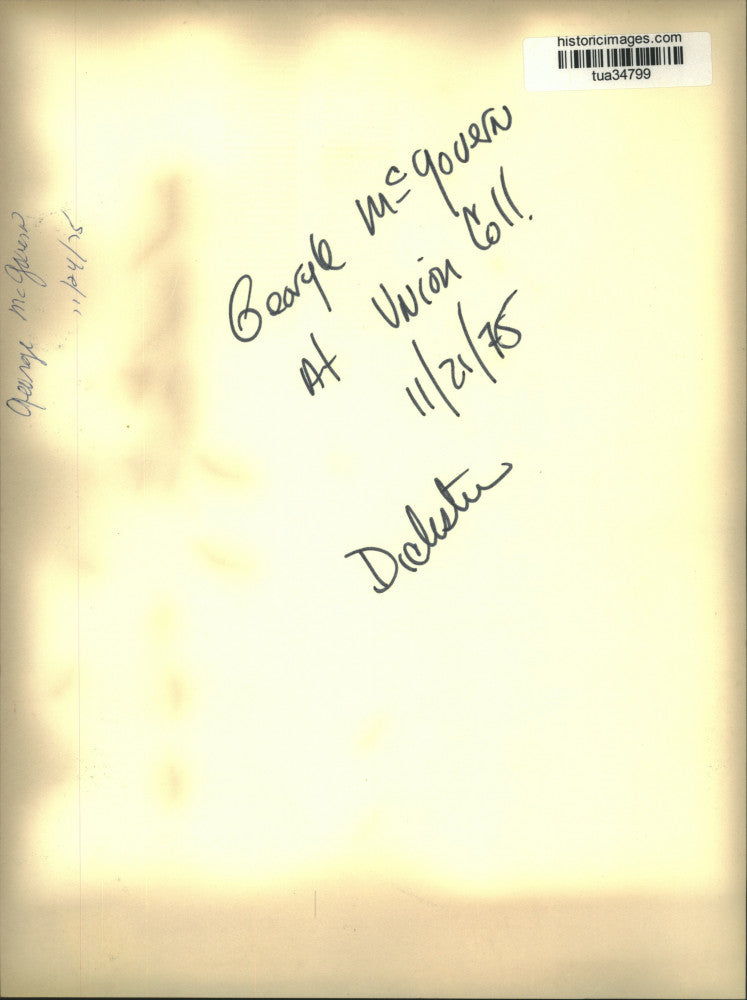 historicimages.com
tua34799
George McGovern
At Union Coll.
11/21/75
Dickstein
George McGovern
11/24/75